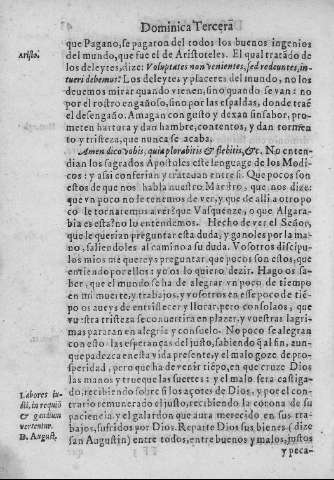 Dominica Tercera
que Pagano, se pagaron del todos los buenos ingenios
del mundo, que fue el de Aristoteles. El qual tratado de
Aristo.
los deleytes, dize: Voluptates non venientes, sed redeuntes, in-
tueri debemus: Los deleytes y placeres del mundo, no los
deuemos mirar quando vienen, sino quando se van: no
por el rostro engañoso, sino por las espaldas, donde traē
el desengaño. Amagan con gusto y dexan sinsabor, pro-
meten hartura y dan hambre, contentos, y dan tormēn
to y tristeza, que nunca se acaba.
Amen dico vobis: quia plorabitis & flebitis, &c. No enten-
dian los sagrados Apostoles este lenguage de los Modi-
cos: y assi conferian y tratauan entre si. Que pocos son
estos de que nos habla nuestro Maestro, que nos dize:
que vn poco no le tenemos de ver, y que de alli a otro po
co le tornaremos a ver: que Vasquenze, o que Algara-
bia es esta? no lo entendemos. Hecho de ver el Señor,
que le querian preguntar esta duda, y ganoles por la ma
no, saliendoles al camino a su duda. Vosotros discipu-
los mios me quereys preguntar, que pocos son estos, que
entiendo por ellos: yo os lo quiero dezir. Hago os sa-
ber, que el mundo se ha de alegrar vn poco de tiempo
en mi muerte, y trabajos, y vosotros en esse poco de tiē-
po os aueys de entristecer y llorar: pero consolaos, que
vuestra tristeza se conuertira en plazer, y vuestras lagri-
mas pararan en alegria y consuelo. No poco se alegran
con esto las esperanças del justo, sabiendo q̃ al fin, aun-
que padezca en esta vida presente, y el malo goze de pros-
peridad, pero que ha de venir tiēpo, en que cruze Dios
las manos y trueque las suertes: y el malo sera castiga-
do, recibiendo sobre si los açotes de Dios, y por el con-
Labores iu-
dii, in requiē
& gaudium
vertentur.
D. August.
trario remunerado el justo, recibiendo la corona de su
paciencia y el galardon que aura merecido en sus tra-
bajos, sufridos por Dios. Reparte Dios sus bienes (dize
san Augustin) entre todos, entre buenos y malos, justos
y peca-